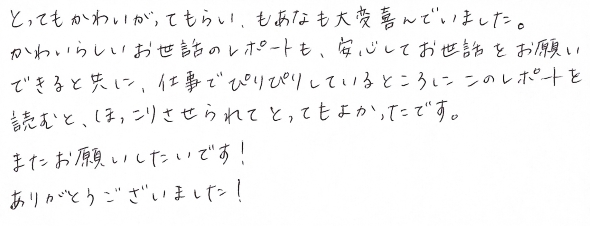 とってもかわいがってもらい、もあなも大変喜んでいました。
かわいらしいお世話のレポートも、安心してお世話をお願い
できると共に、仕事でぴりぴりしているところにこのレポートを
読むと、ほっこりさせられてとってもよかったです。
またお願いしたいです！
ありがとうございました！